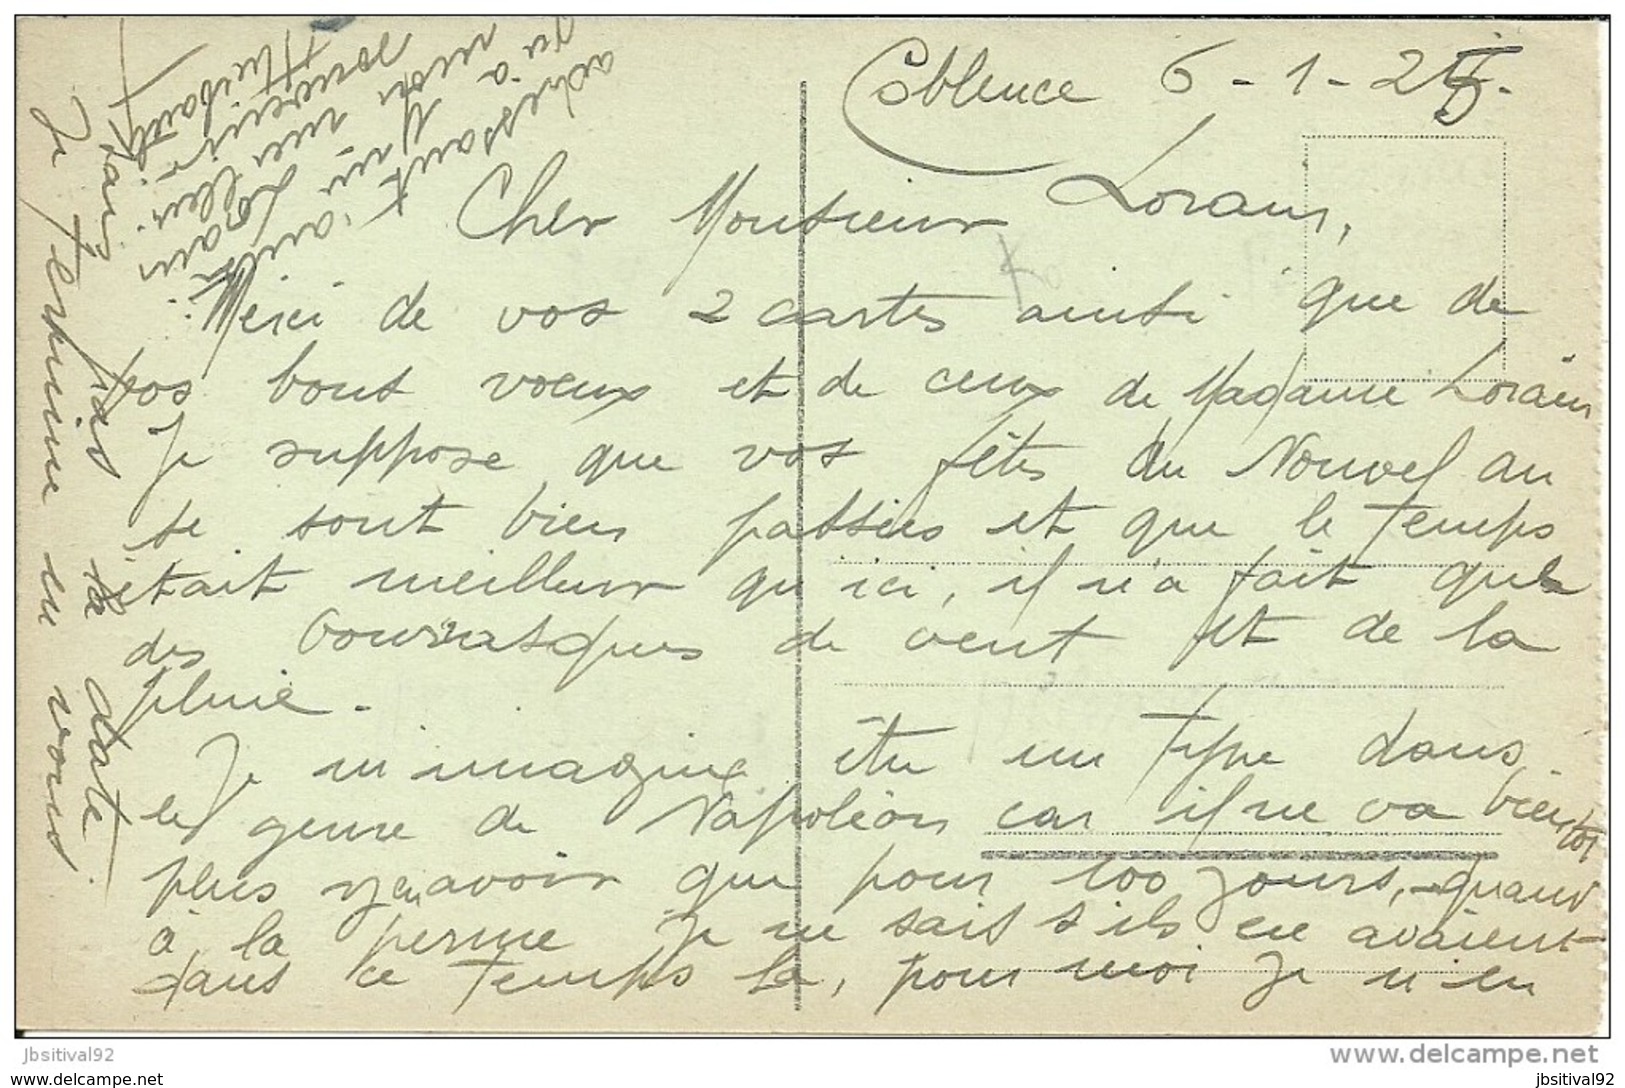 Coblence 6-1-25.
Cher Monsieur Lorain,
Merci de vos 2 cartes ainsi que de
vos bons voeux et de ceux de Madame Lorain
Je suppose que vos fêtes du Nouvel an
se sont bien passées et que le temps
était meilleur qu'ici, il n'a fait que
des bourrasques de vent et de la
pluie.
Je m'imagine être un type dans
le genre de Napoléon car il ne va bientôt
plus y en avoir que pour 100 jours, quand
à la perme je ne sais s'ils en avaient
dans ce temps là, pour moi je n'en
sais pas la date
Je termine en vous
adressant ainsi
qu'à Mme Lorain
mon meilleur
souvenir.
jbsitival92
www.delcampe.net
jbsitival92
www.delcampe.net
jbsitival92